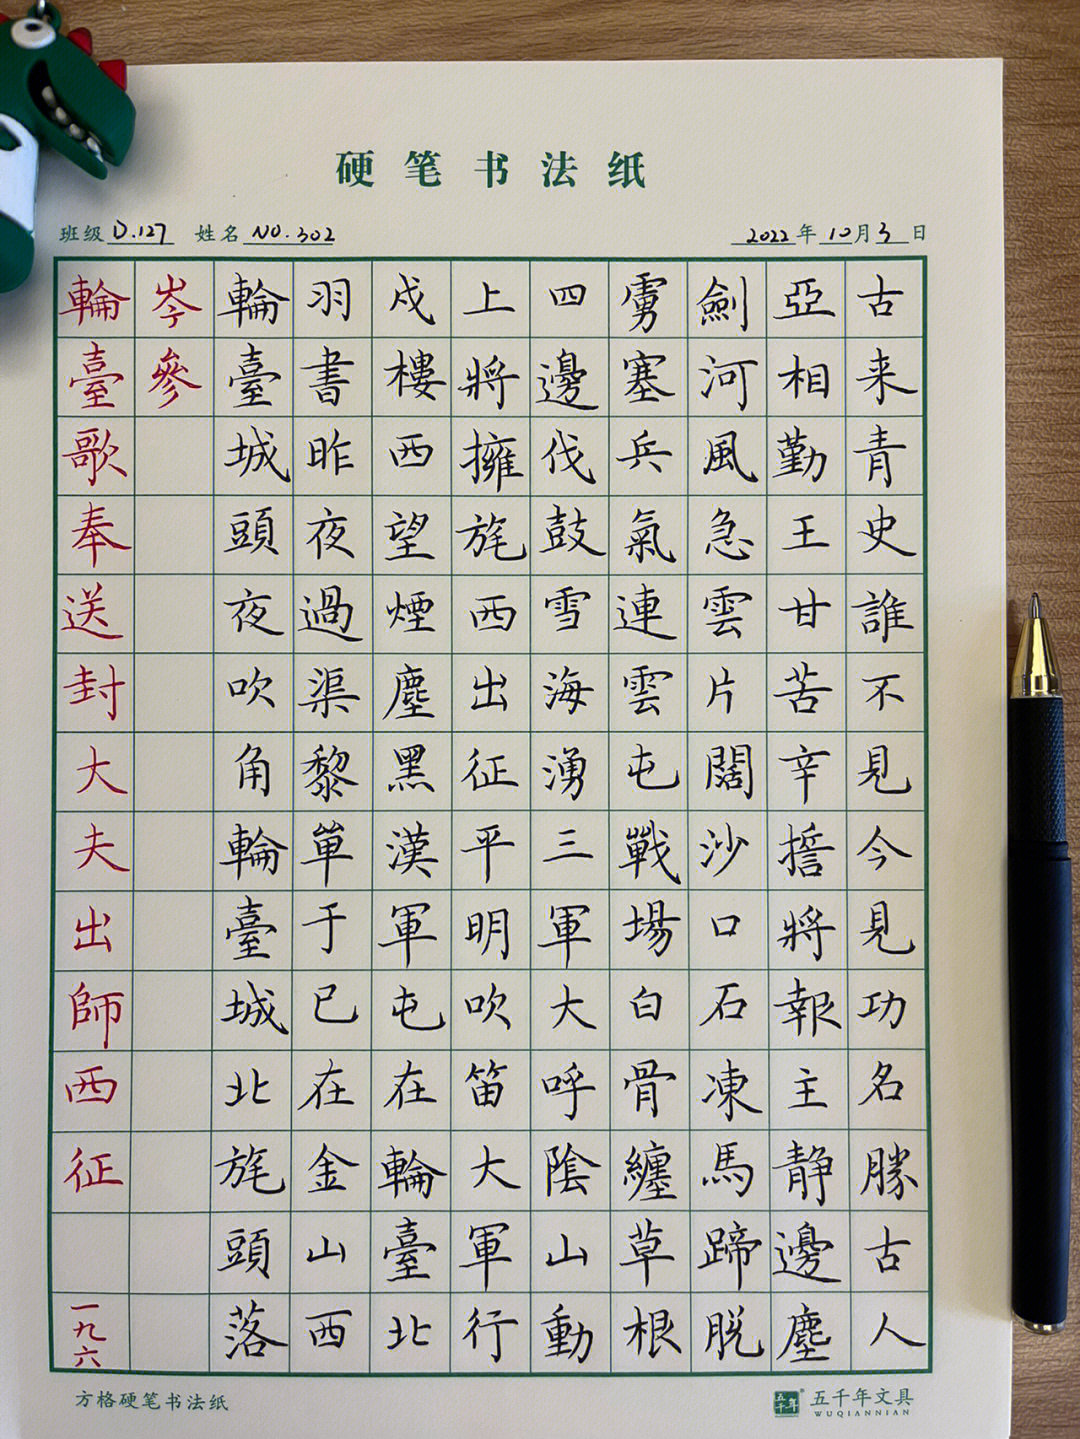 硬笔书法纸
班级 D.127 姓名 NO.302 2022年10月3日
輪臺歌奉送封大夫出師西征 一九六
岑參
輪臺城頭夜吹角輪臺城北旄頭落
羽書昨夜過渠黎單于已在金山西
戍樓西望煙塵黑漢軍屯在輪臺北
上將擁旄西出征平明吹笛大軍行
四邊伐鼓雪海湧三軍大呼陰山動
虜塞兵氣連雲屯戰場白骨纏草根
劍河風急雲片闊沙口石凍馬蹄脱
亞相勤王甘苦辛誓將報主静邊塵
古来青史誰不見今見功名勝古人
方格硬笔书法纸
五千年 五千年文具
WUQIANNIAN